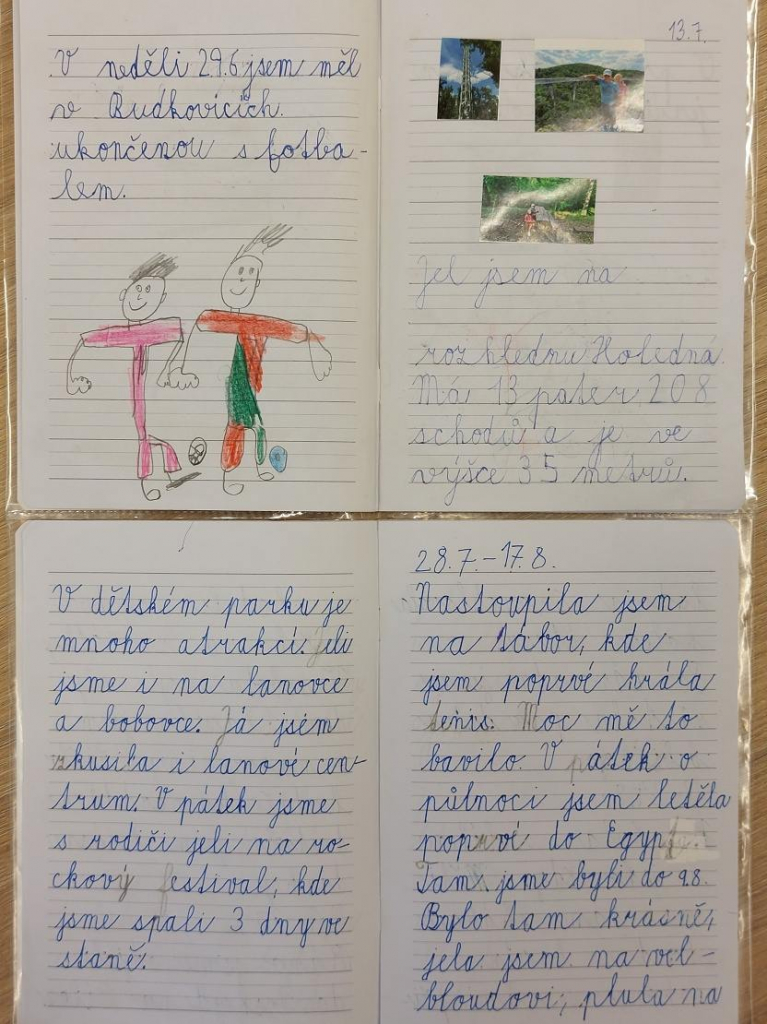 V neděli 29.6 jsem měl
v Rudkovicích
ukončenou s fotba-
lem.
13.7.
Jel jsem na
rozhlednu Holedná
Má 13 pater 208
schodů a je ve
výšce 35 metrů.
V dětském parku je
mnoho atrakcí. Jeli
jsme i na lanovce
a bobovce. Já jsem
zkusila i lanové cen-
trum. V pátek jsme
s rodiči jeli na ro-
ckový festival, kde
jsme spali 3 dny ve
staně.
28.7.-17.8.
Nastoupila jsem
na tábor, kde
jsem poprvé hrála
tenis. Moc mě to
bavilo. V pátek o
půlnoci jsem letěla
poprvé do Egypta.
Tam jsme byli do 9.8.
Bylo tam krásně,
jela jsem na vel-
bloudovi, plula na